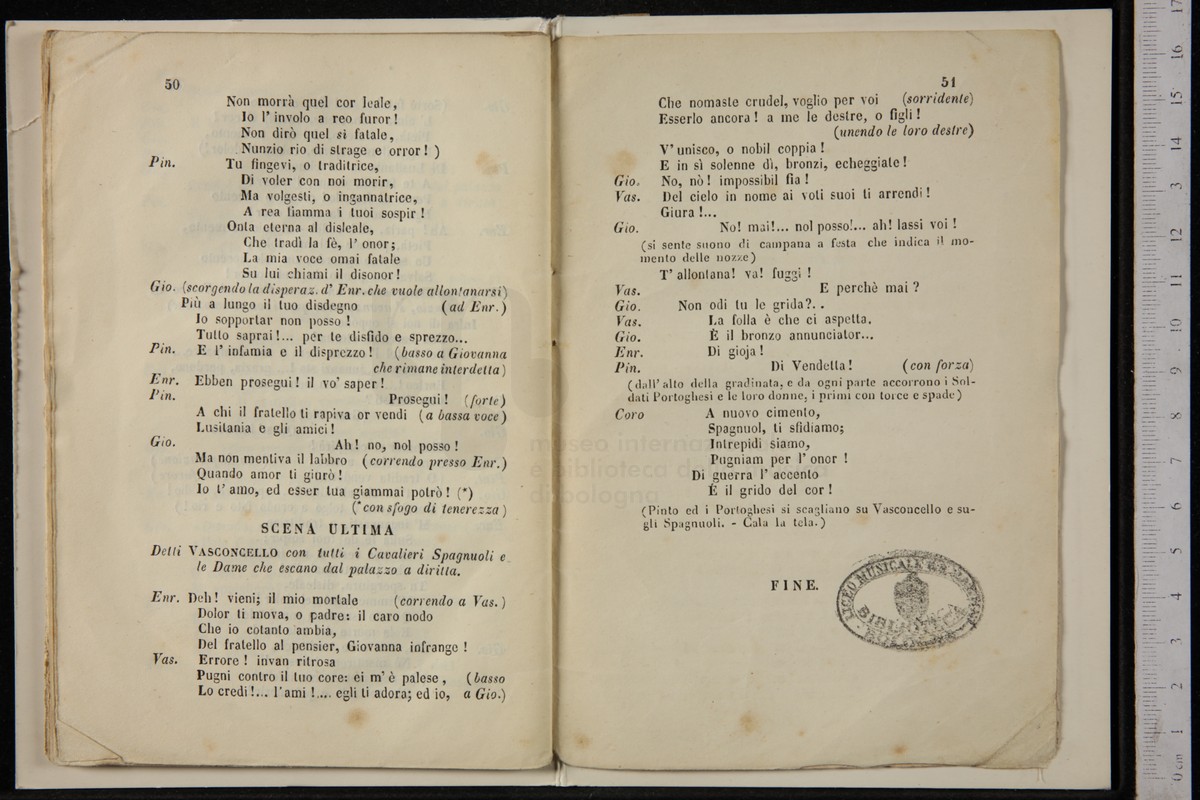 50
Non morrà quel cor leale,
Io l' involo a reo furor!
Non dirò quel sì fatale,
Nunzio rio di strage e orror! )
Pin. Tu fingevi, o traditrice,
Di voler con noi morir,
Ma volgesti, o ingannatrice,
A rea fiamma i tuoi sospir!
Onta eterna al disleale,
Che tradì la fè, l' onor;
La mia voce omai fatale
Su lui chiami il disonor!
Gio. (scorgendo la disperaz. d' Enr. che vuole allontanarsi)
Più a lungo il tuo disdegno (ad Enr.)
Io sopportar non posso!
Tutto saprai!... per te disfido e sprezzo...
Pin. E l' infamia e il disprezzo! (basso a Giovanna
che rimane interdetta)
Enr. Ebben prosegui! il vo' saper!
Pin. Prosegui! (forte)
A chi il fratello ti rapiva or vendi (a bassa voce)
Lusitania e gli amici!
Gio. Ah! no, nol posso!
Ma non mentiva il labbro (correndo presso Enr.)
Quando amor ti giurò!
Io t' amo, ed esser tua giammai potrò! (*)
(* con sfogo di tenerezza)
SCENA ULTIMA
Detti VASCONCELLO con tutti i Cavalieri Spagnuoli e
le Dame che escano dal palazzo a diritta.
Enr. Deh! vieni; il mio mortale (correndo a Vas.)
Dolor ti mova, o padre: il caro nodo
Che io cotanto ambia,
Del fratello al pensier, Giovanna infrange!
Vas. Errore! invan ritrosa
Pugni contro il tuo core: ei m' è palese, (basso
Lo credi!... l' ami!.... egli ti adora; ed io, a Gio.)
51
Che nomaste crudel, voglio per voi (sorridente)
Esserlo ancora! a me le destre, o figli!
(unendo le loro destre)
V' unisco, o nobil coppia!
E in sì solenne dì, bronzi, echeggiate!
Gio. No, nò! impossibil fia!
Vas. Del cielo in nome ai voti suoi ti arrendi!
Giura!...
Gio. No! mai!... nol posso!... ah! lassi voi!
(si sente suono di campana a festa che indica il mo-
mento delle nozze)
T' allontana! va! fuggi!
Vas. E perchè mai?
Gio. Non odi tu le grida?..
Vas. La folla è che ci aspetta.
Gio. È il bronzo annunciator...
Enr. Di gioja!
Pin. Di Vendetta! (con forza)
(dall' alto della gradinata, e da ogni parte accorrono i Sol-
dati Portoghesi e le loro donne, i primi con torce e spade)
Coro A nuovo cimento,
Spagnuol, ti sfidiamo;
Intrepidi siamo,
Pugniam per l' onor!
Di guerra l' accento
È il grido del cor!
(Pinto ed i Portoghesi si scagliano su Vasconcello e su-
gli Spagnuoli. - Cala la tela.)
FINE.
LICEO MUSICALE
museo internaz
e biblioteca de
di bologna